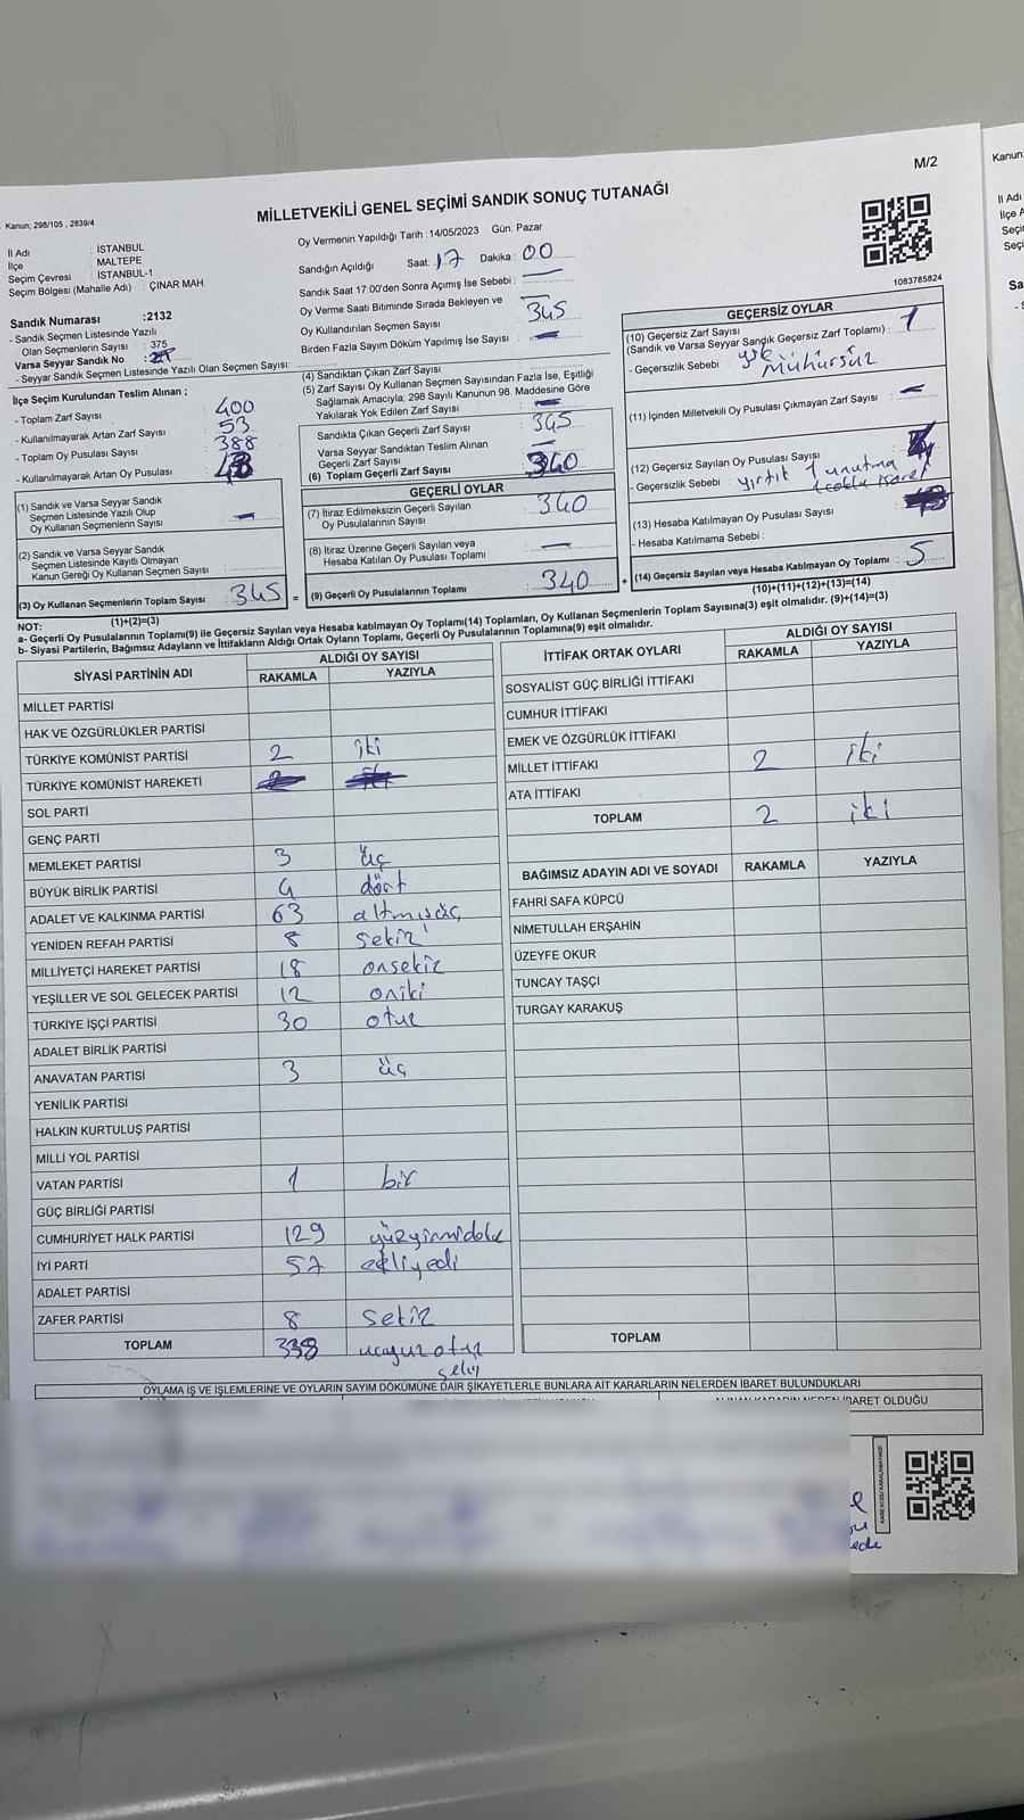 M/2
Kanun; 298/105 , 2839/4
MİLLETVEKİLİ GENEL SEÇİMİ SANDIK SONUÇ TUTANAĞI
İl Adı : İSTANBUL
İlçe : MALTEPE
Seçim Çevresi : İSTANBUL-1
Seçim Bölgesi (Mahalle Adı) : ÇINAR MAH.
Sandık Numarası :2132
- Sandık Seçmen Listesinde Yazılı
Olan Seçmenlerin Sayısı : 375
Varsa Seyyar Sandık No :
- Seyyar Sandık Seçmen Listesinde Yazılı Olan Seçmen Sayısı:
İlçe Seçim Kurulundan Teslim Alınan ;
- Toplam Zarf Sayısı 400
- Kullanılmayarak Artan Zarf Sayısı 53
- Toplam Oy Pusulası Sayısı 388
- Kullanılmayarak Artan Oy Pusulası
(1) Sandık ve Varsa Seyyar Sandık
Seçmen Listesinde Yazılı Olup
Oy Kullanan Seçmenlerin Sayısı -
(2) Sandık ve Varsa Seyyar Sandık
Seçmen Listesinde Kayıtlı Olmayan
Kanun Gereği Oy Kullanan Seçmen Sayısı :
(3) Oy Kullanan Seçmenlerin Toplam Sayısı 345 =
(1)+(2)=(3)
Oy Vermenin Yapıldığı Tarih :14/05/2023 Gün: Pazar
Sandığın Açıldığı Saat: 17 Dakika : 00
Sandık Saat 17:00'den Sonra Açımış İse Sebebi : -
Oy Verme Saati Bitiminde Sırada Bekleyen ve
Oy Kullandırılan Seçmen Sayısı 345
Birden Fazla Sayım Döküm Yapılmış İse Sayısı : -
(4) Sandıktan Çıkan Zarf Sayısı
(5) Zarf Sayısı Oy Kullanan Seçmen Sayısından Fazla İse, Eşitliği
Sağlamak Amacıyla; 298 Sayılı Kanunun 98. Maddesine Göre
Yakılarak Yok Edilen Zarf Sayısı -
Sandıkta Çıkan Geçerli Zarf Sayısı 345
Varsa Seyyar Sandıktan Teslim Alınan
Geçerli Zarf Sayısı -
(6) Toplam Geçerli Zarf Sayısı 340
GEÇERLİ OYLAR
(7) İtiraz Edilmeksizin Geçerli Sayılan
Oy Pusulalarının Sayısı 340
(8) İtiraz Üzerine Geçerli Sayılan veya
Hesaba Katılan Oy Pusulası Toplamı -
(9) Geçerli Oy Pusulalarının Toplamı 340 +
1083785824
GEÇERSİZ OYLAR
(10) Geçersiz Zarf Sayısı
(Sandık ve Varsa Seyyar Sandık Geçersiz Zarf Toplamı) : 1
- Geçersizlik Sebebi ysk Mühürsüz
(11) İçinden Milletvekili Oy Pusulası Çıkmayan Zarf Sayısı -
(12) Geçersiz Sayılan Oy Pusulası Sayısı
- Geçersizlik Sebebi yırtık 1 unutma
(13) Hesaba Katılmayan Oy Pusulası Sayısı
- Hesaba Katılmama Sebebi :
(14) Geçersiz Sayılan veya Hesaba Katılmayan Oy Toplamı 5
(10)+(11)+(12)+(13)=(14)
NOT:
a- Geçerli Oy Pusulalarının Toplamı(9) ile Geçersiz Sayılan veya Hesaba katılmayan Oy Toplamı(14) Toplamları, Oy Kullanan Seçmenlerin Toplam Sayısına(3) eşit olmalıdır. (9)+(14)=(3)
b- Siyasi Partilerin, Bağımsız Adayların ve İttifakların Aldığı Ortak Oyların Toplamı, Geçerli Oy Pusulalarının Toplamına(9) eşit olmalıdır.
SİYASİ PARTİNİN ADI ALDIĞI OY SAYISI
RAKAMLA YAZIYLA
MİLLET PARTİSİ
HAK VE ÖZGÜRLÜKLER PARTİSİ
TÜRKİYE KOMÜNİST PARTİSİ 2 iki
TÜRKİYE KOMÜNİST HAREKETİ
SOL PARTİ
GENÇ PARTİ
MEMLEKET PARTİSİ 3 üç
BÜYÜK BİRLİK PARTİSİ 4 dört
ADALET VE KALKINMA PARTİSİ 63 altmışüç
YENİDEN REFAH PARTİSİ 8 sekiz
MİLLİYETÇİ HAREKET PARTİSİ 18 onsekiz
YEŞİLLER VE SOL GELECEK PARTİSİ 12 oniki
TÜRKİYE İŞÇİ PARTİSİ 30 otuz
ADALET BİRLİK PARTİSİ
ANAVATAN PARTİSİ 3 üç
YENİLİK PARTİSİ
HALKIN KURTULUŞ PARTİSİ
MİLLİ YOL PARTİSİ
VATAN PARTİSİ 1 bir
GÜÇ BİRLİĞİ PARTİSİ
CUMHURİYET HALK PARTİSİ 129 yüzyirmidokuz
İYİ PARTİ 57 elliyedi
ADALET PARTİSİ
ZAFER PARTİSİ 8 sekiz
TOPLAM 338 üçyüzotuz
sekiz
İTTİFAK ORTAK OYLARI ALDIĞI OY SAYISI
RAKAMLA YAZIYLA
SOSYALİST GÜÇ BİRLİĞİ İTTİFAKI
CUMHUR İTTİFAKI
EMEK VE ÖZGÜRLÜK İTTİFAKI
MİLLET İTTİFAKI 2 iki
ATA İTTİFAKI
TOPLAM 2 iki
BAĞIMSIZ ADAYIN ADI VE SOYADI RAKAMLA YAZIYLA
FAHRİ SAFA KÜPCÜ
NİMETULLAH ERŞAHİN
ÜZEYFE OKUR
TUNCAY TAŞÇI
TURGAY KARAKUŞ
TOPLAM
OYLAMA İŞ VE İŞLEMLERİNE VE OYLARIN SAYIM DÖKÜMÜNE DAİR ŞİKAYETLERLE BUNLARA AİT KARARLARIN NELERDEN İBARET BULUNDUKLARI
İBARET OLDUĞU
Kanun;
İl Adı
İlçe